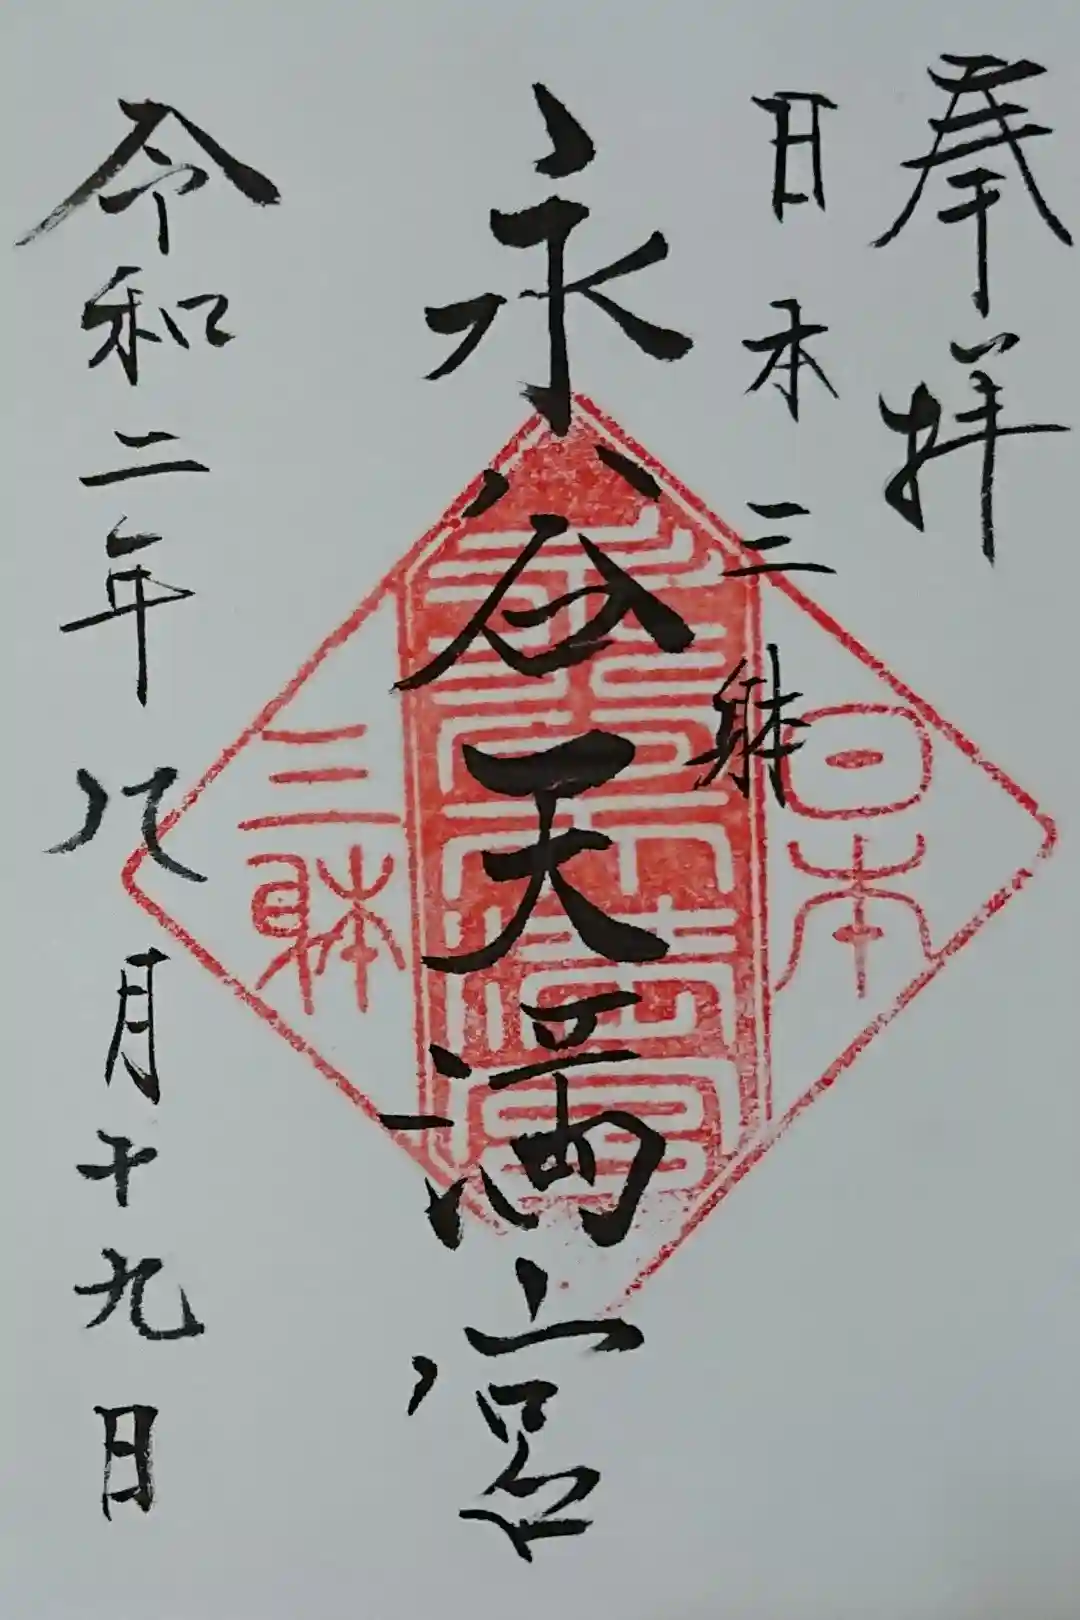 奉拝
日本三躰
永谷天満宮
令和二年八月十九日
日本
永谷天満宮
三躰